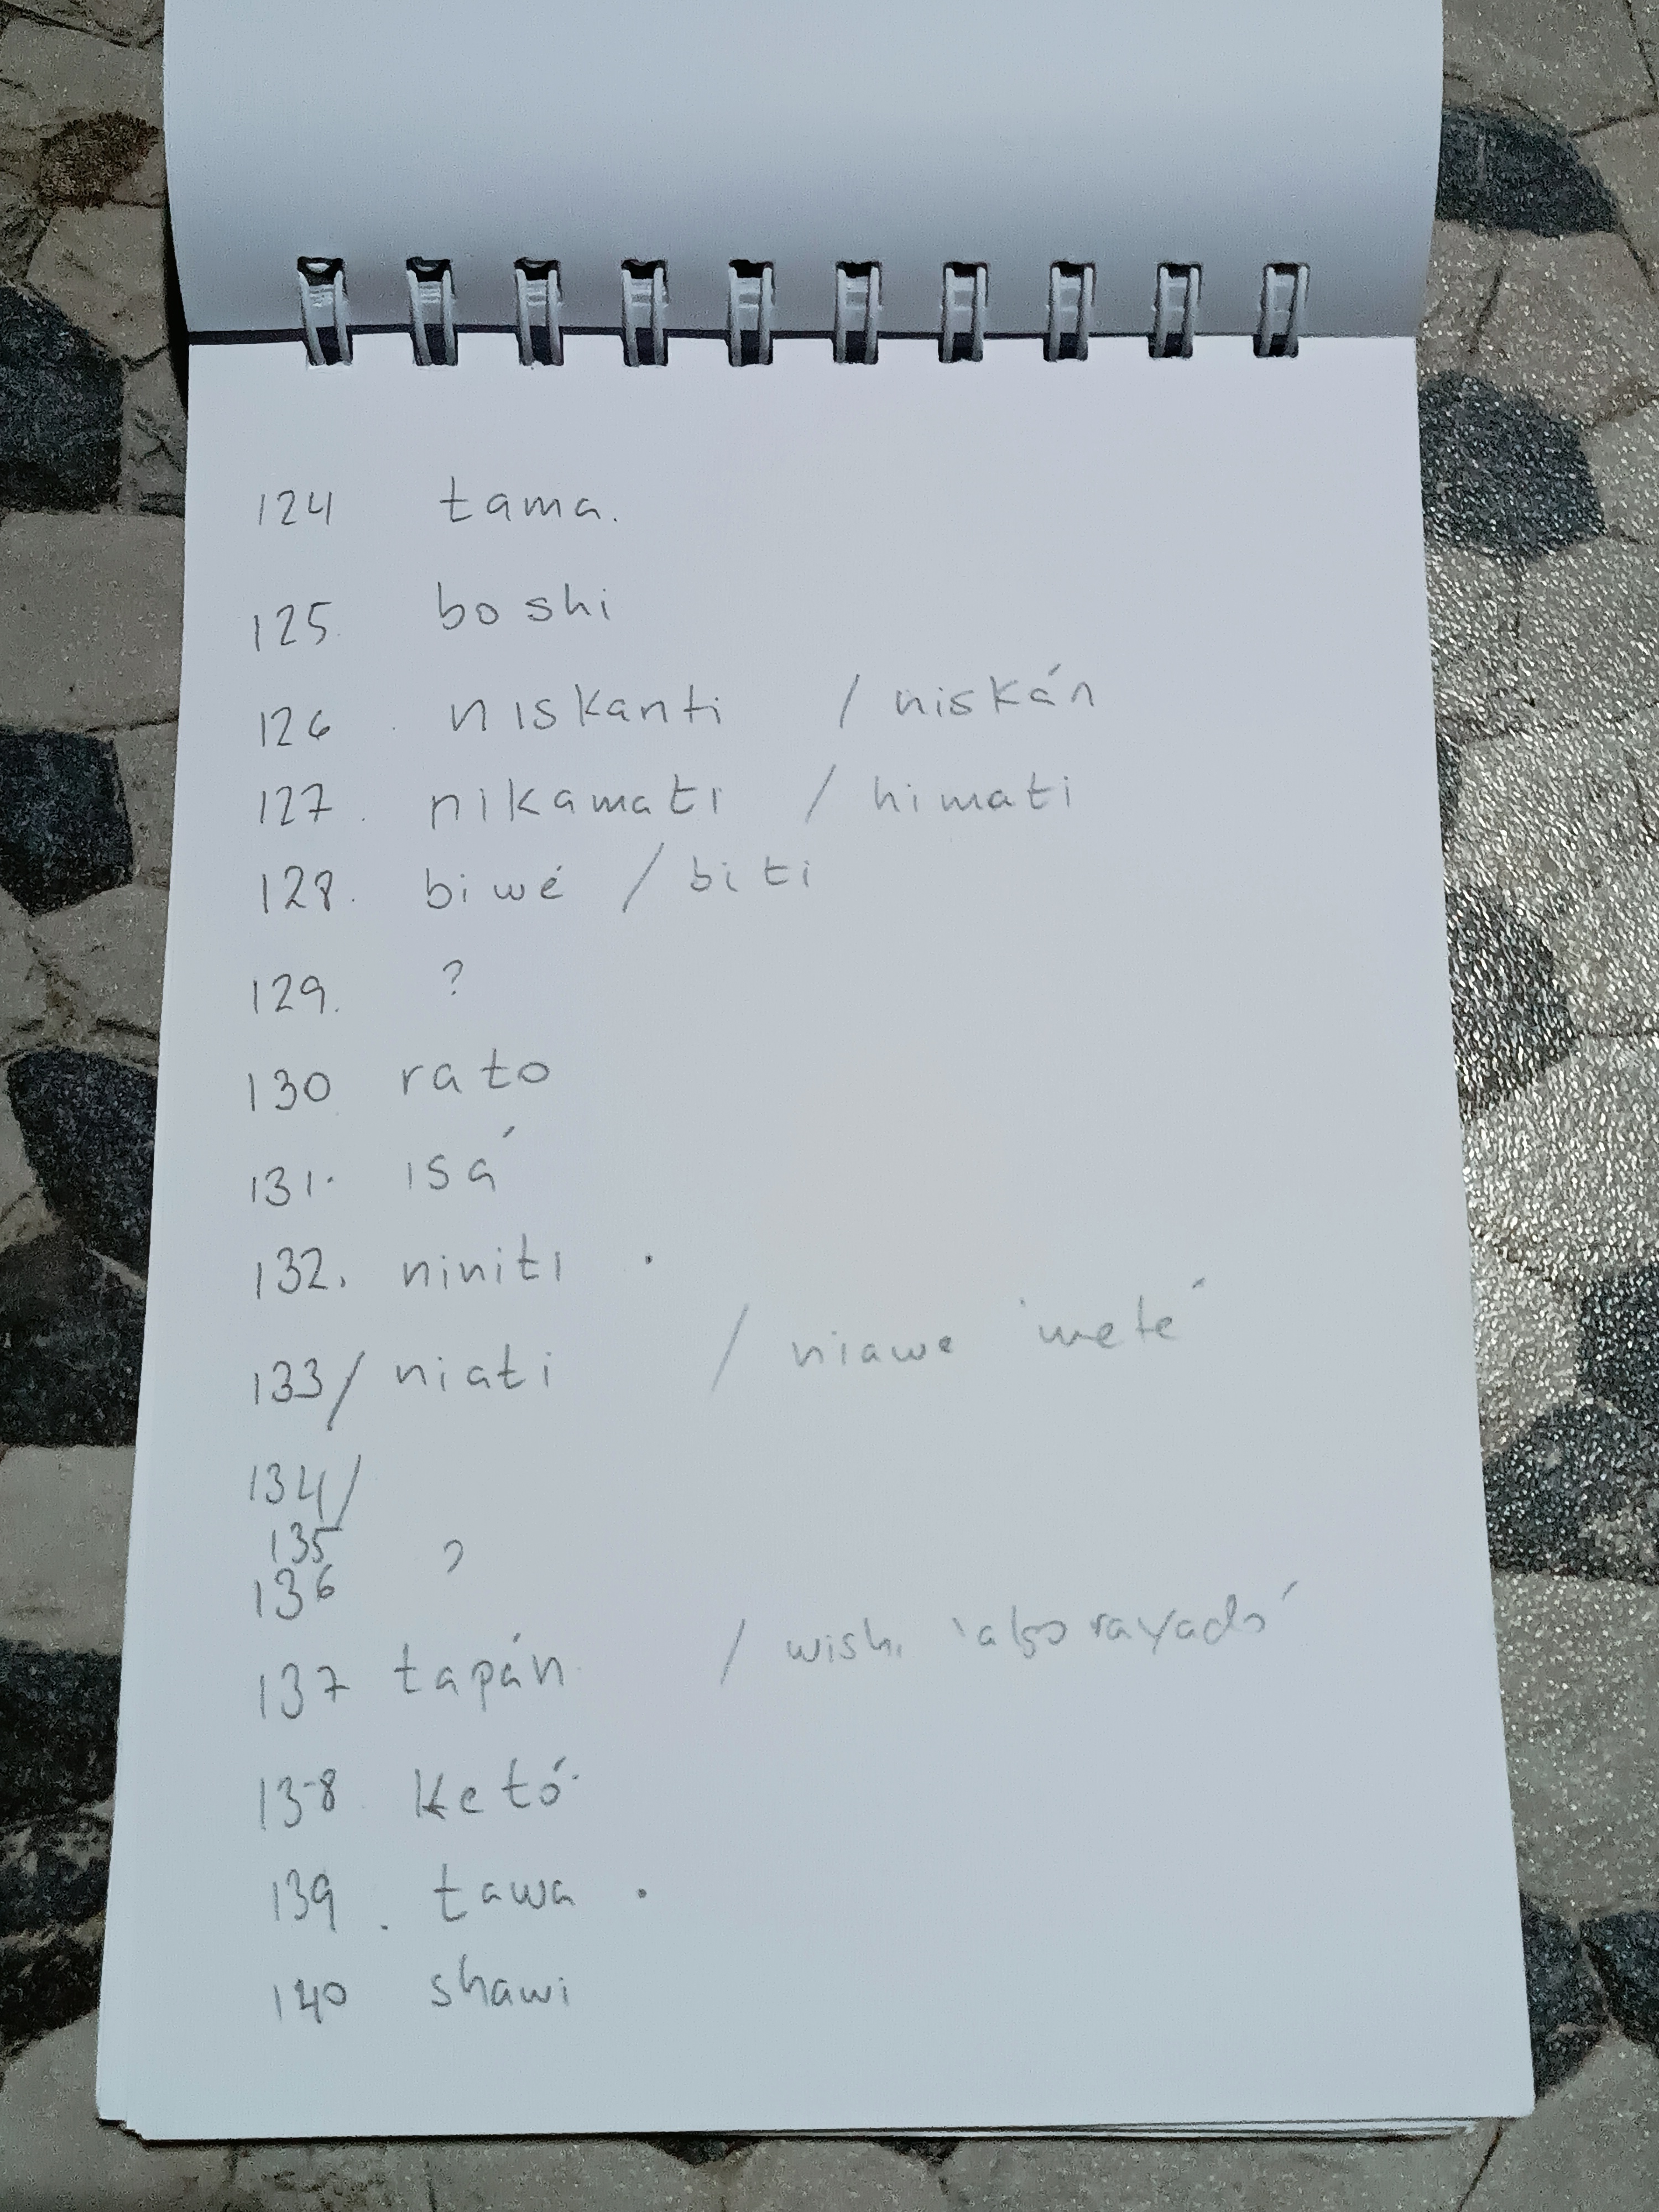 124 tama.
125. boshi
126 . niskanti / niskán
127 . nikamati / himati
128. biwé / biti
129. ?
130 rato
131. isá
132. niniti .
133/ niati / niawe 'mete'
134/
135
136 ?
137 tapán / wishi 'algo rayado'
138 ketó
139 . tawa .
140 shawi